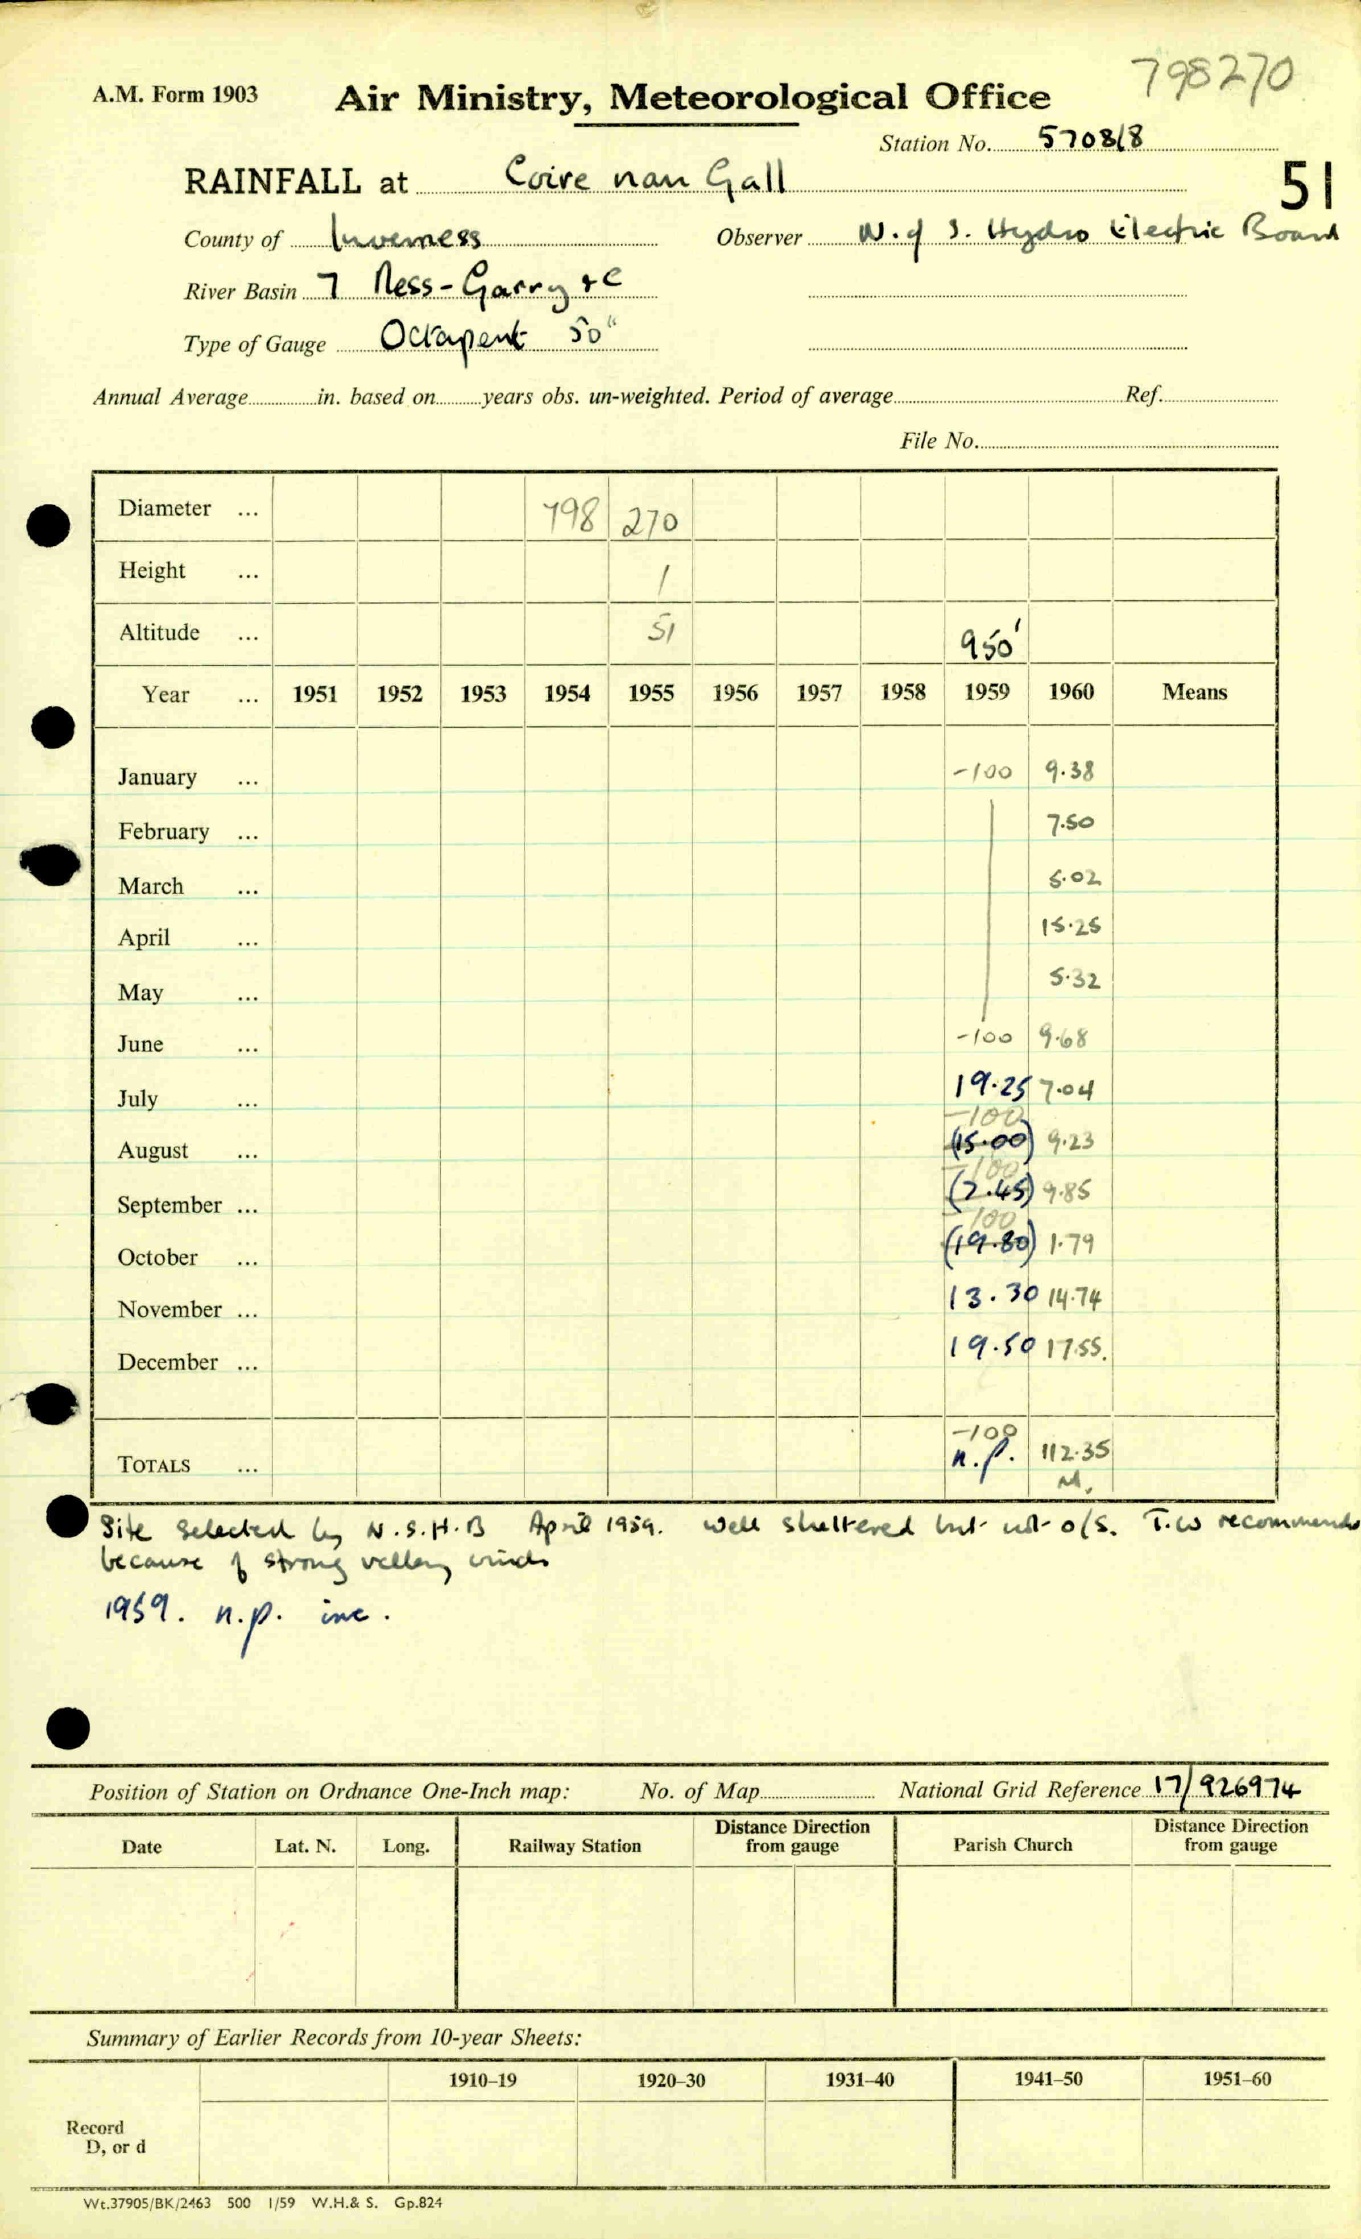 798270
A.M. Form 1903 Air Ministry, Meteorological Office
Station No. 5708/8
RAINFALL at Coire nan Gall 51
County of Inverness Observer N. of S. Hydro Electric Board
River Basin 7 Ness-Garry + C
Type of Gauge Octapent 50"
Annual Average in. based on years obs. un-weighted. Period of average Ref.
File No.
Diameter ... 798 270
Height ... 1
Altitude ... 51 950'
Year ... 1951 1952 1953 1954 1955 1956 1957 1958 1959 1960 Means
January ... -100 9.38
February ... 7.50
March ... 5.02
April ... 15.25
May ... 5.32
June ... -100 9.68
July ... 19.25 7.04
-100
August ... (15.00) 9.23
-100
September ... (7.45) 9.85
-100
October ... (19.80) 1.79
November ... 13.30 14.74
December ... 19.50 17.55.
-100
TOTALS ... n.p. 112.35
Site selected by N.S.H.B April 1959. Well sheltered but not o/s. T.W recommends
because of strong valley winds
1959. n.p. inc.
Position of Station on Ordnance One-Inch map: No. of Map National Grid Reference 17/926974
Date Lat. N. Long. Railway Station Distance Direction from gauge Parish Church Distance Direction from gauge
Summary of Earlier Records from 10-year Sheets:
1910–19 1920–30 1931–40 1941–50 1951–60
Record
D, or d
Wt.37905/BK/2463 500 1/59 W.H.& S. Gp.824